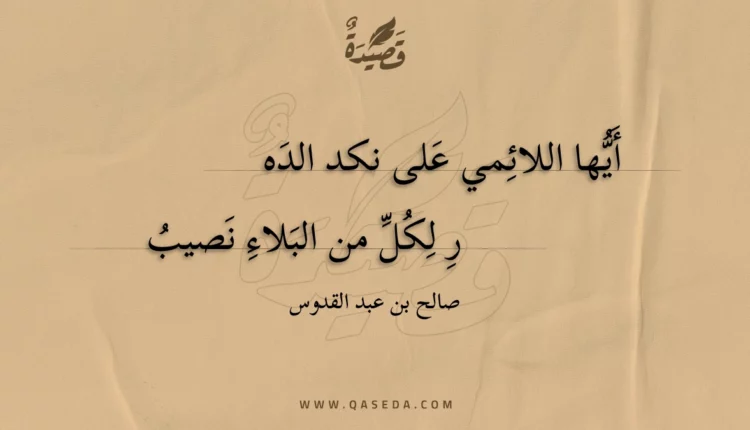 قَصِيدَةٌ
أَيُّها اللائِمي عَلى نكد الدَه
رِ لِكُلِّ من البَلاءِ نَصيبُ
صالح بن عبد القدوس
WWW.QASEDA.COM